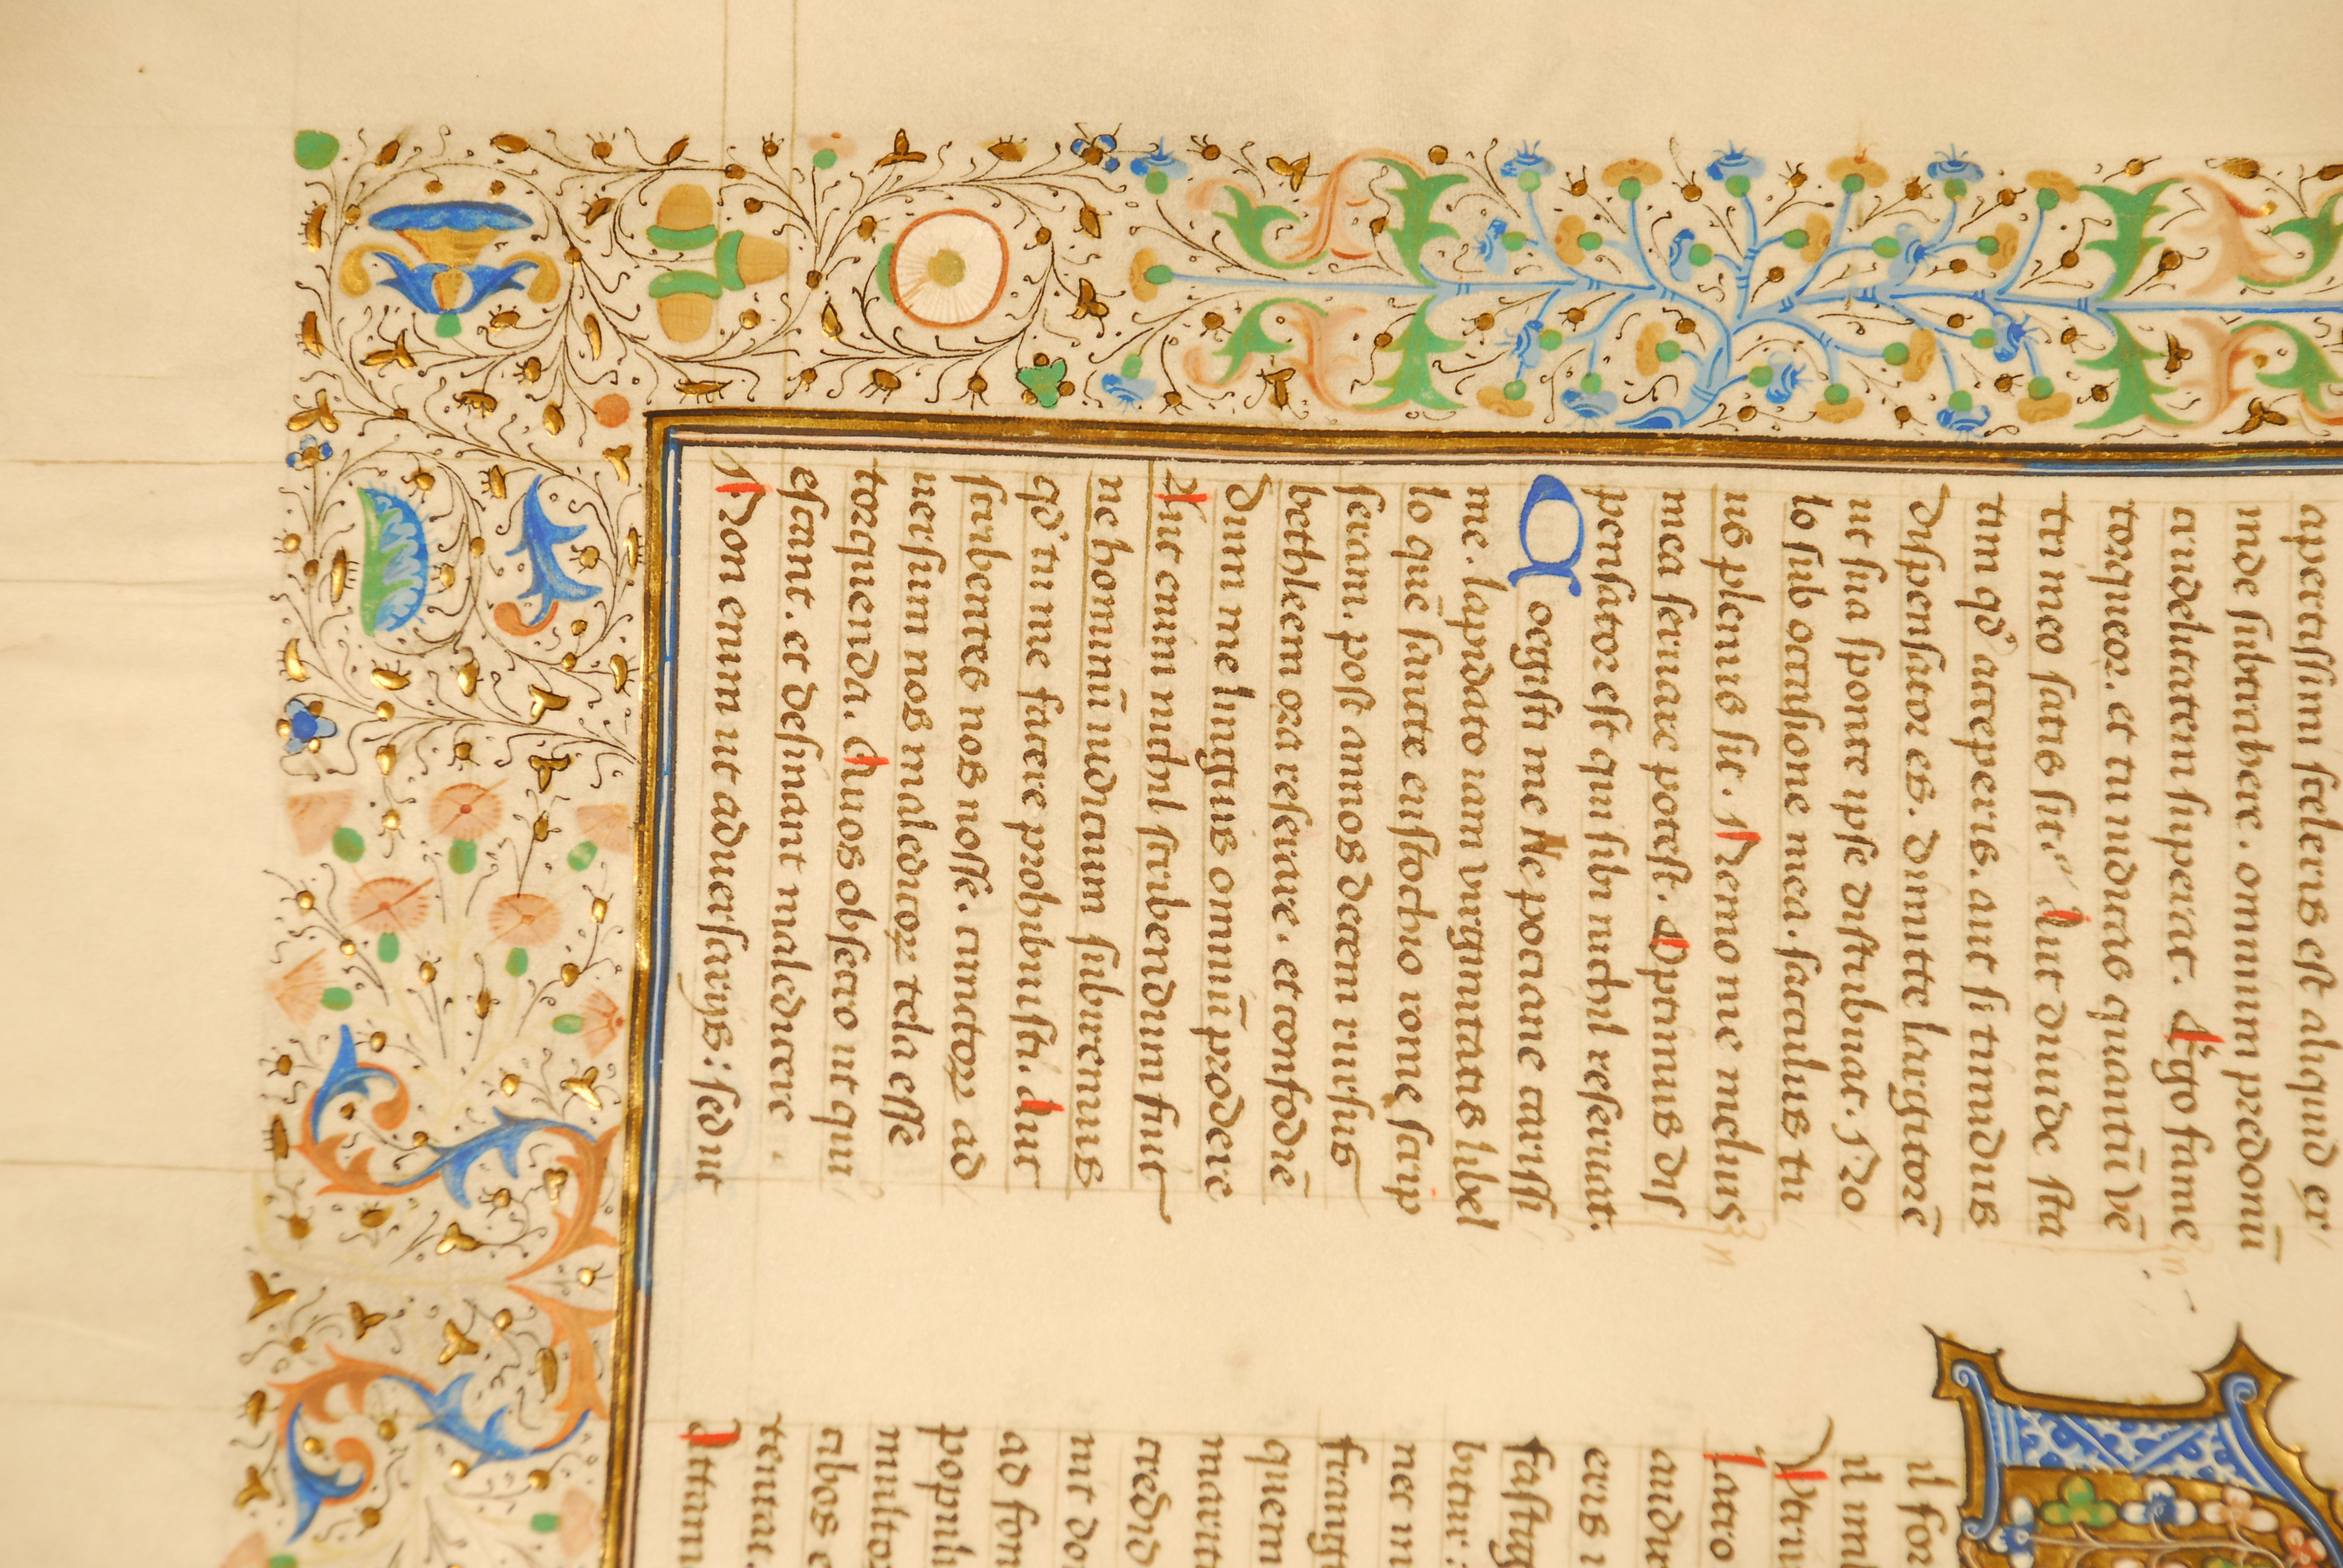 apertissimi sceleris est aliquid ex
inde subtrahere. omnium predonũ
crudelitatem superat. Ego fame
torqueor. et tu iudicas quantũ vẽ
tri meo satis sit. Aut diuide sta
tim qd' acceperis. aut si timidus
dispensator es. dimitte largitorẽ
ut sua sponte ipse distribuat. No
lo sub occasione mea. sacculus tu
us plenus sit. Nemo me melius
mea seruare potest. Optimus dis
pensator est qui sibi nichil reseruat.
Coegisti me Nepotiane carissi
me. lapidato iam virginitatis libel
lo quẽ sancte eustochio rome scrip
seram. post annos decem rursus
bethleem ora reserare. et confodiẽ
dum me linguis omniũ prodere
Aut enim nichil scribendum fuit
ne hominũ iudicium subiremus
qd' tu me facere prohibuisti. aut
scribentes nos nosse. cunctoꝝ ad
uersum nos maledicoꝝ tela esse
torquenda. Quos obsecro ut qui
escant. et desinant maledicere.
Non enim ut aduersarijs: sed ut
il for
audi
fastig
bitur.
nec in
frangi
quem
credid
ad fon
populi
multor
cibos e
tentat.
Attam